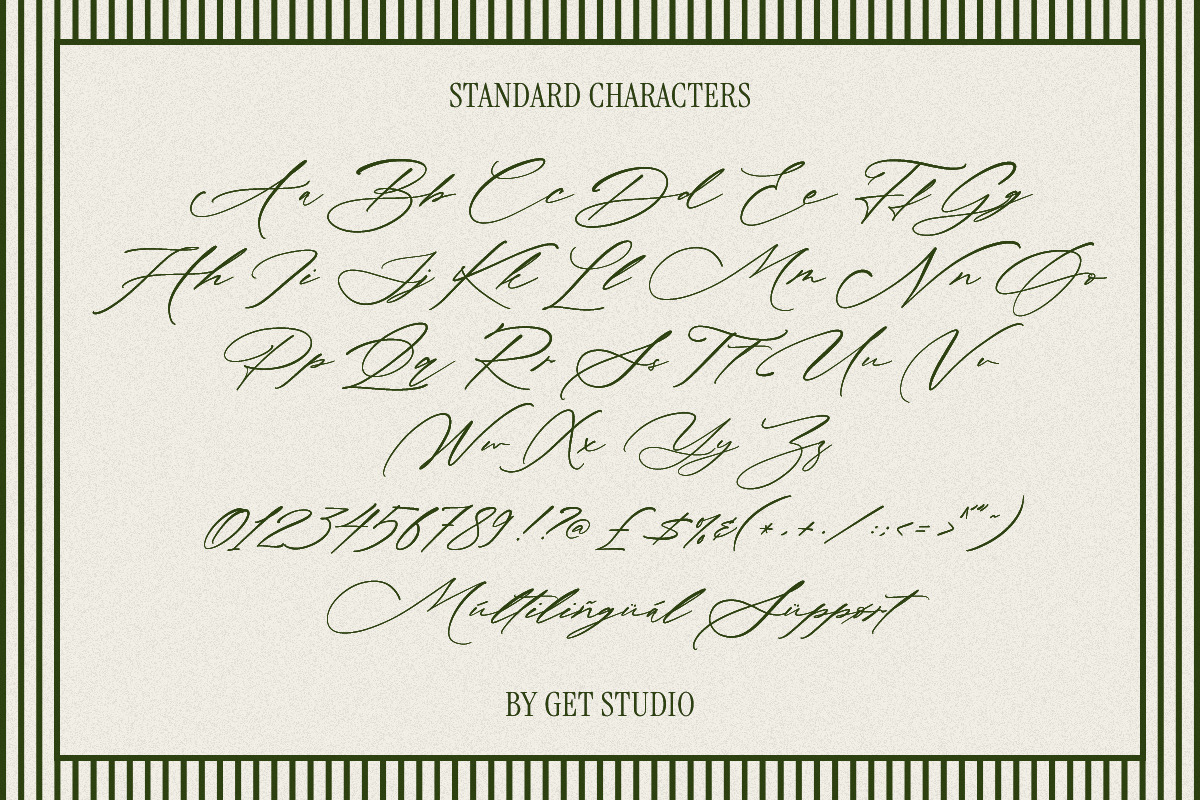 STANDARD CHARACTERS
Aa Bb Cc Dd Ee Ff Gg
Hh Ii Jj Kk Ll Mm Nn Oo
Pp Qq Rr Ss Tt Uu Vv
Ww Xx Yy Zz
0123456789!?@ £ $%&(*.+./:;<=>^"“~)
Múltiliñgüál Süppørt
BY GET STUDIO